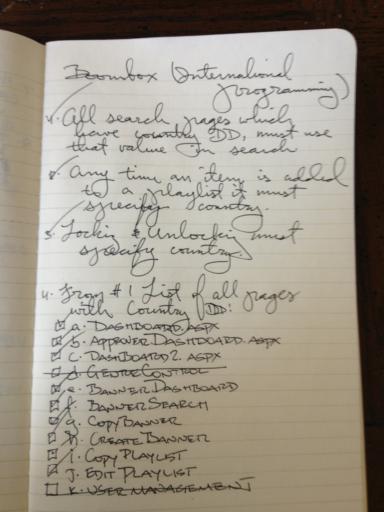 Boombox (International
programming)
1. All search pages which
have country DD, must use
that value in search
2. Any time an item is added
to a playlist it must
specify country.
3. Locking & Unlocking must
specify country.
4. From #1 List of all pages
with Country DD:
a. DASHBOARD.ASPX
b. APPROVERDASHBOARD.ASPX
c. DASHBOARD2.ASPX
d. GENRECONTROL
e. BANNERDASHBOARD
f. BANNERSEARCH
g. COPYBANNER
h. CREATEBANNER
i. COPYPLAYLIST
j. EDITPLAYLIST
k. USER MANAGEMENT